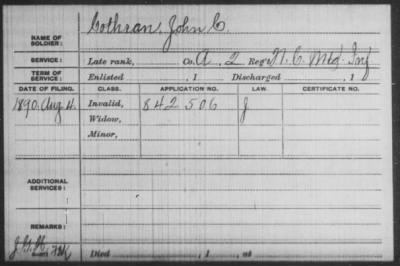 NAME OF SOLDIER: Cothran, John C.
SERVICE: Late rank, Co. A, 2 Reg't N.C. Mtd. Inf
TERM OF SERVICE: Enlisted , 1 Discharged , 1
DATE OF FILING. CLASS. APPLICATION NO. LAW. CERTIFICATE NO.
1890. Aug 4. Invalid, 842 506 J
Widow,
Minor,
ADDITIONAL SERVICES:
REMARKS:
Died , 1 , at